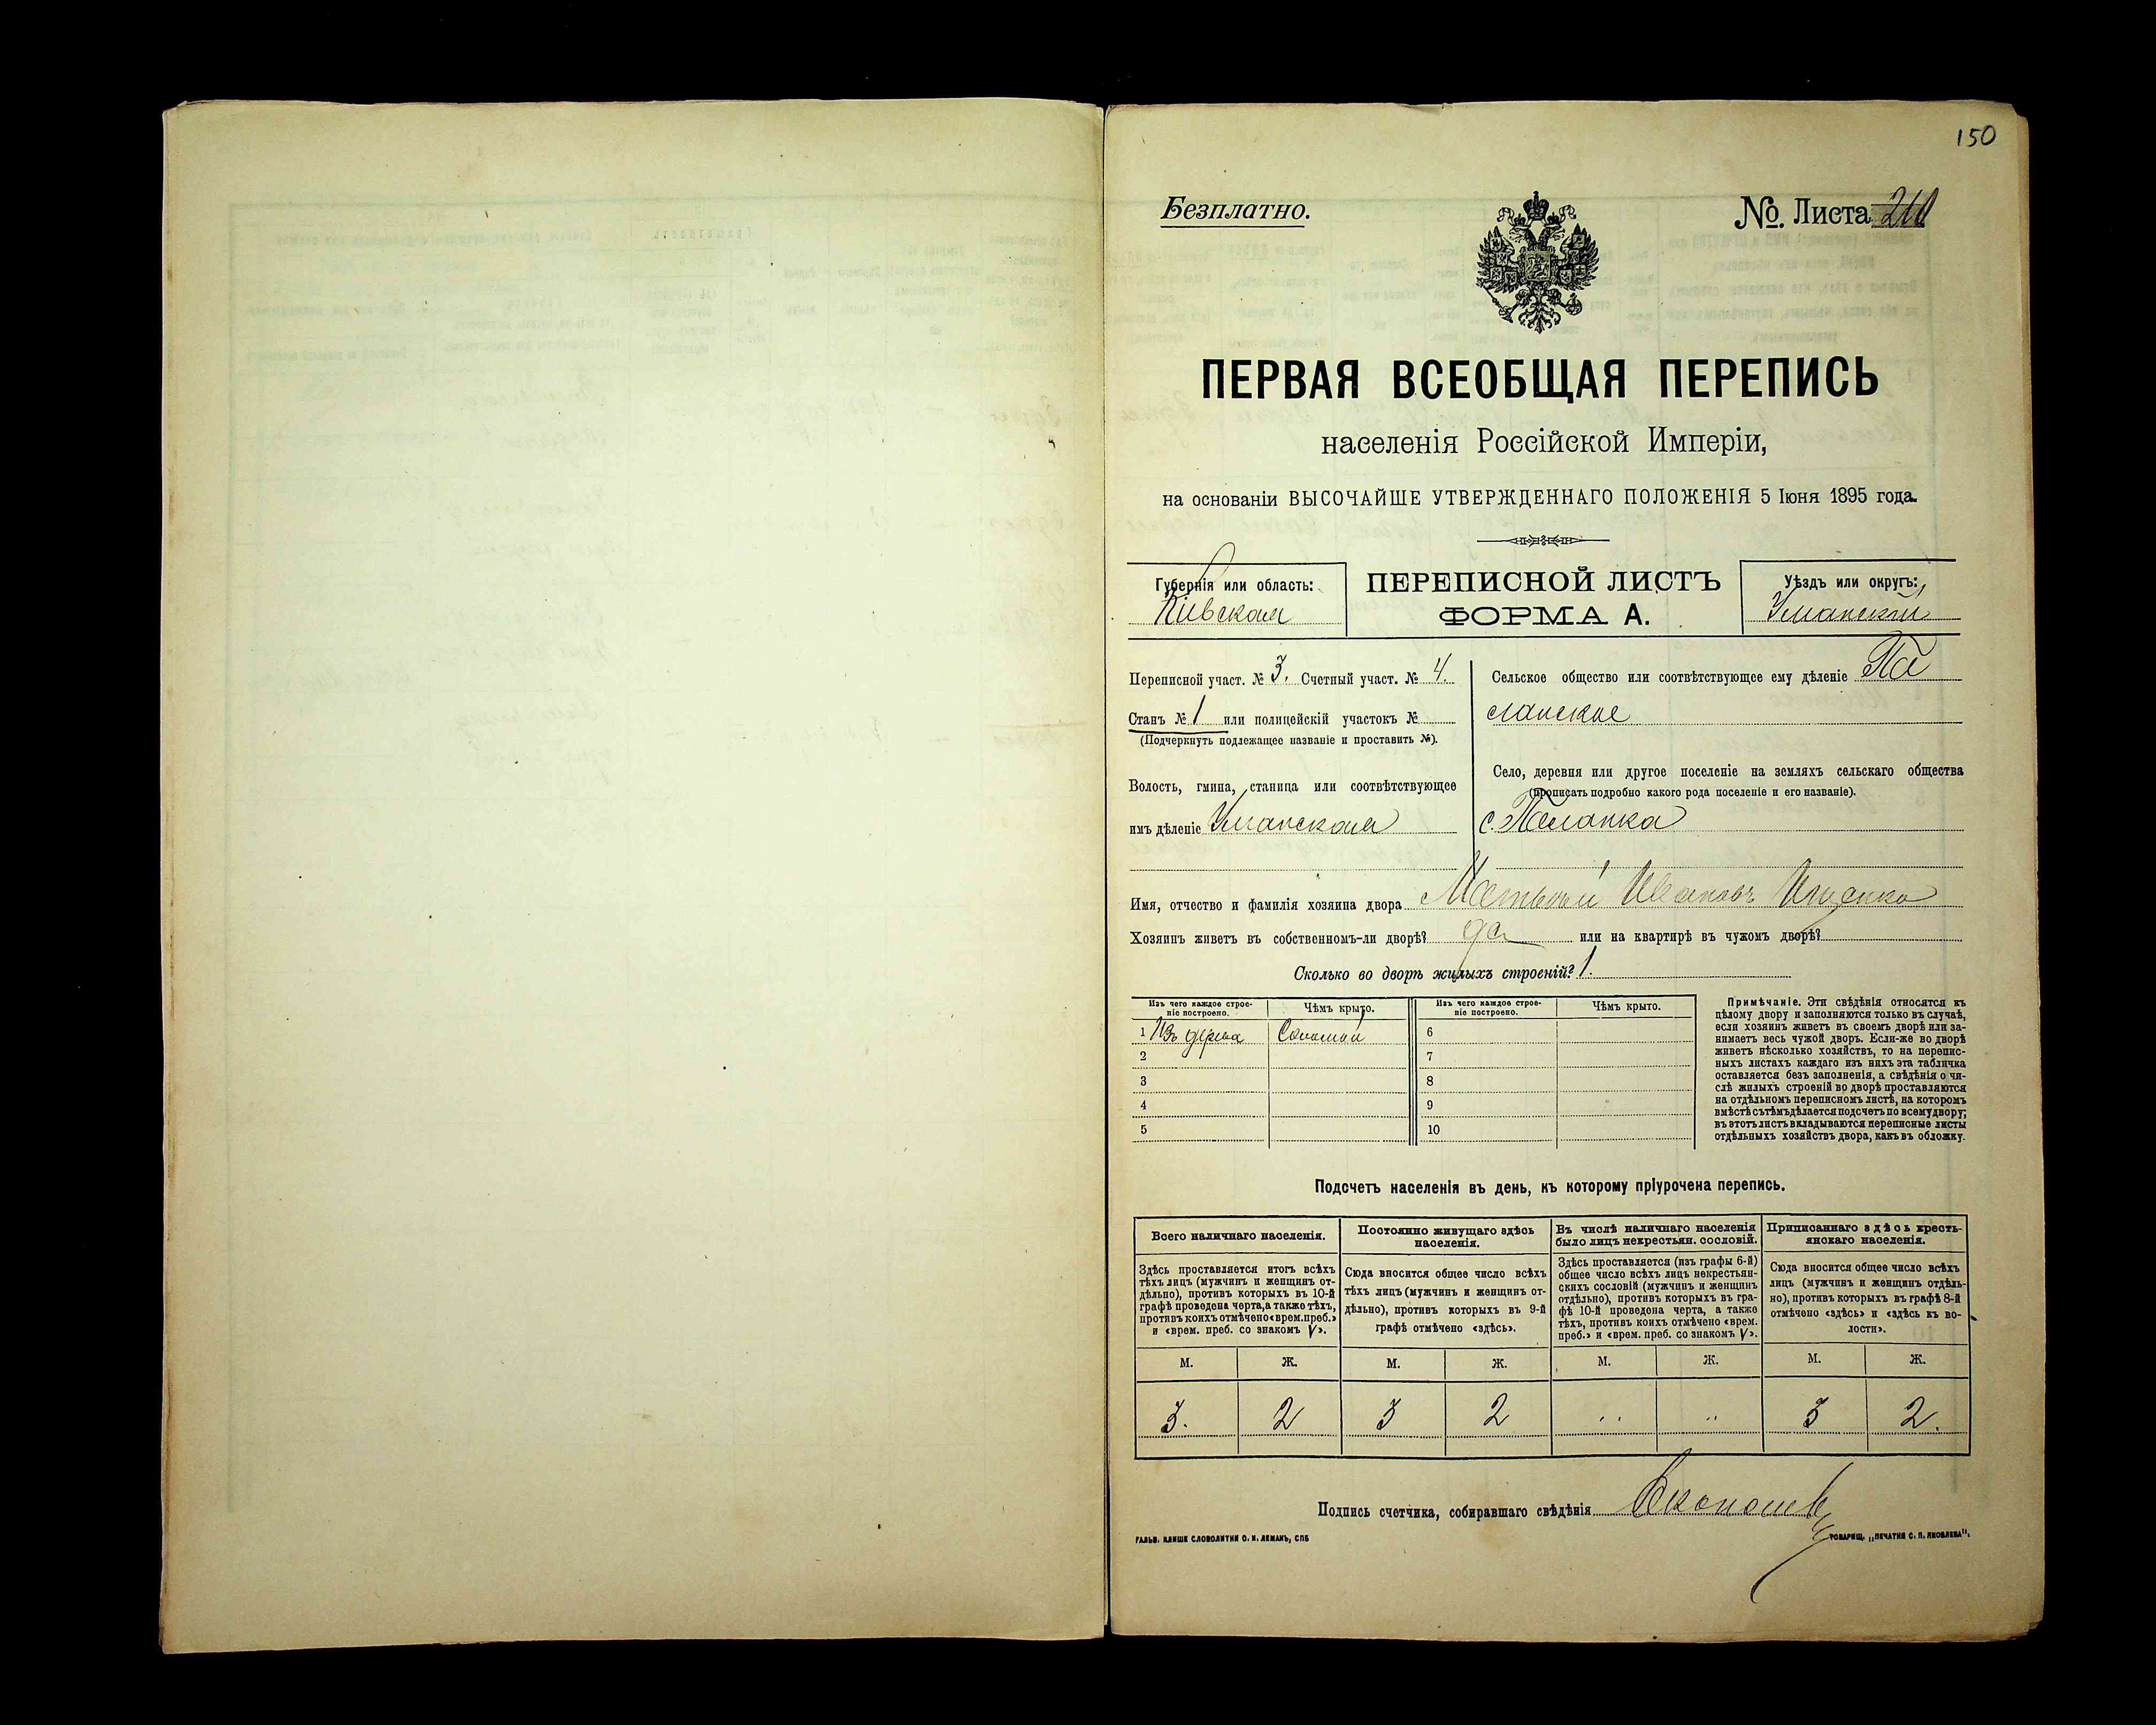 150
Безплатно.
№ Листа
ПЕРВАЯ ВСЕОБЩАЯ ПЕРЕПИСЬ
населенія Россійской Имперіи,
на основаніи ВЫСОЧАЙШЕ УТВЕРЖДЕННАГО ПОЛОЖЕНІЯ 5 Іюня 1895 года.
Губернія или область:
Кіевская
ПЕРЕПИСНОЙ ЛИСТЪ
ФОРМА А.
Уѣздъ или округъ:
Уманскій
Переписной участ. № 3. Счетный участ. № 4.
Станъ № 1 или полицейскій участокъ №
(Подчеркнуть подлежащее названіе и проставить №).
Волость, гмина, станица или соотвѣтствующее
имъ дѣленіе Уманская
Сельское общество или соотвѣтствующее ему дѣленіе Па
ланское
Село, деревня или другое поселеніе на земляхъ сельскаго общества
(прописать подробно какого рода поселеніе и его названіе).
с. Паланка
Имя, отчество и фамилія хозяина двора Матвѣй Ивановъ Ищенко
Хозяинъ живетъ въ собственномъ-ли дворѣ? да или на квартирѣ въ чужомъ дворѣ?
Сколько во дворѣ жилыхъ строеній? 1.
Изъ чего каждое строе-
ніе построено.
Чѣмъ крыто.
Изъ чего каждое строе-
ніе построено.
Чѣмъ крыто.
1 Изъ дерева Соломой 6
2 7
3 8
4 9
5 10
Примѣчаніе. Эти свѣдѣнія относятся къ
цѣлому двору и заполняются только въ случаѣ,
если хозяинъ живетъ въ своемъ дворѣ или за-
нимаетъ весь чужой дворъ. Если-же во дворѣ
живетъ нѣсколько хозяйствъ, то на перепис-
ныхъ листахъ каждаго изъ нихъ эта табличка
оставляется безъ заполненія, а свѣдѣнія о чи-
слѣ жилыхъ строеній во дворѣ проставляются
на отдѣльномъ переписномъ листѣ, на которомъ
вмѣстѣ съ тѣмъ дѣлается подсчетъ по всему двору;
въ этотъ листъ вкладываются переписные листы
отдѣльныхъ хозяйствъ двора, какъ въ обложку.
Подсчетъ населенія въ день, къ которому пріурочена перепись.
Всего наличнаго населенія.
Здѣсь проставляется итогъ всѣхъ
тѣхъ лицъ (мужчинъ и женщинъ от-
дѣльно), противъ которыхъ въ 10-й
графѣ проведена черта, а также тѣхъ,
противъ коихъ отмѣчено «врем. преб.»
и «врем. преб. со знакомъ V».
Постоянно живущаго здѣсь
населенія.
Сюда вносится общее число всѣхъ
тѣхъ лицъ (мужчинъ и женщинъ от-
дѣльно), противъ которыхъ въ 9-й
графѣ отмѣчено «здѣсь».
Въ числѣ наличнаго населенія
было лицъ некрестьян. сословій.
Здѣсь проставляется (изъ графы 6-й)
общее число всѣхъ лицъ некрестьян-
скихъ сословій (мужчинъ и женщинъ
отдѣльно), противъ которыхъ въ гра-
фѣ 10-й проведена черта, а также
тѣхъ, противъ коихъ отмѣчено «врем.
преб.» и «врем. преб. со знакомъ V».
Приписаннаго здѣсь кресть-
янскаго населенія.
Сюда вносится общее число всѣхъ
лицъ (мужчинъ и женщинъ отдѣль-
но), противъ которыхъ въ графѣ 8-й
отмѣчено «здѣсь» и «здѣсь къ во-
лости».
М. Ж. М. Ж. М. Ж. М. Ж.
3. 2 3 2 " " 3 2.
Подпись счетчика, собиравшаго свѣдѣнія
ГАЛЬВ. КЛИШЕ СЛОВОЛИТНИ О. И. ЛЕМАНЪ, СПБ
ТОВАРИЩ. „ПЕЧАТНЯ С. П. ЯКОВЛЕВА".